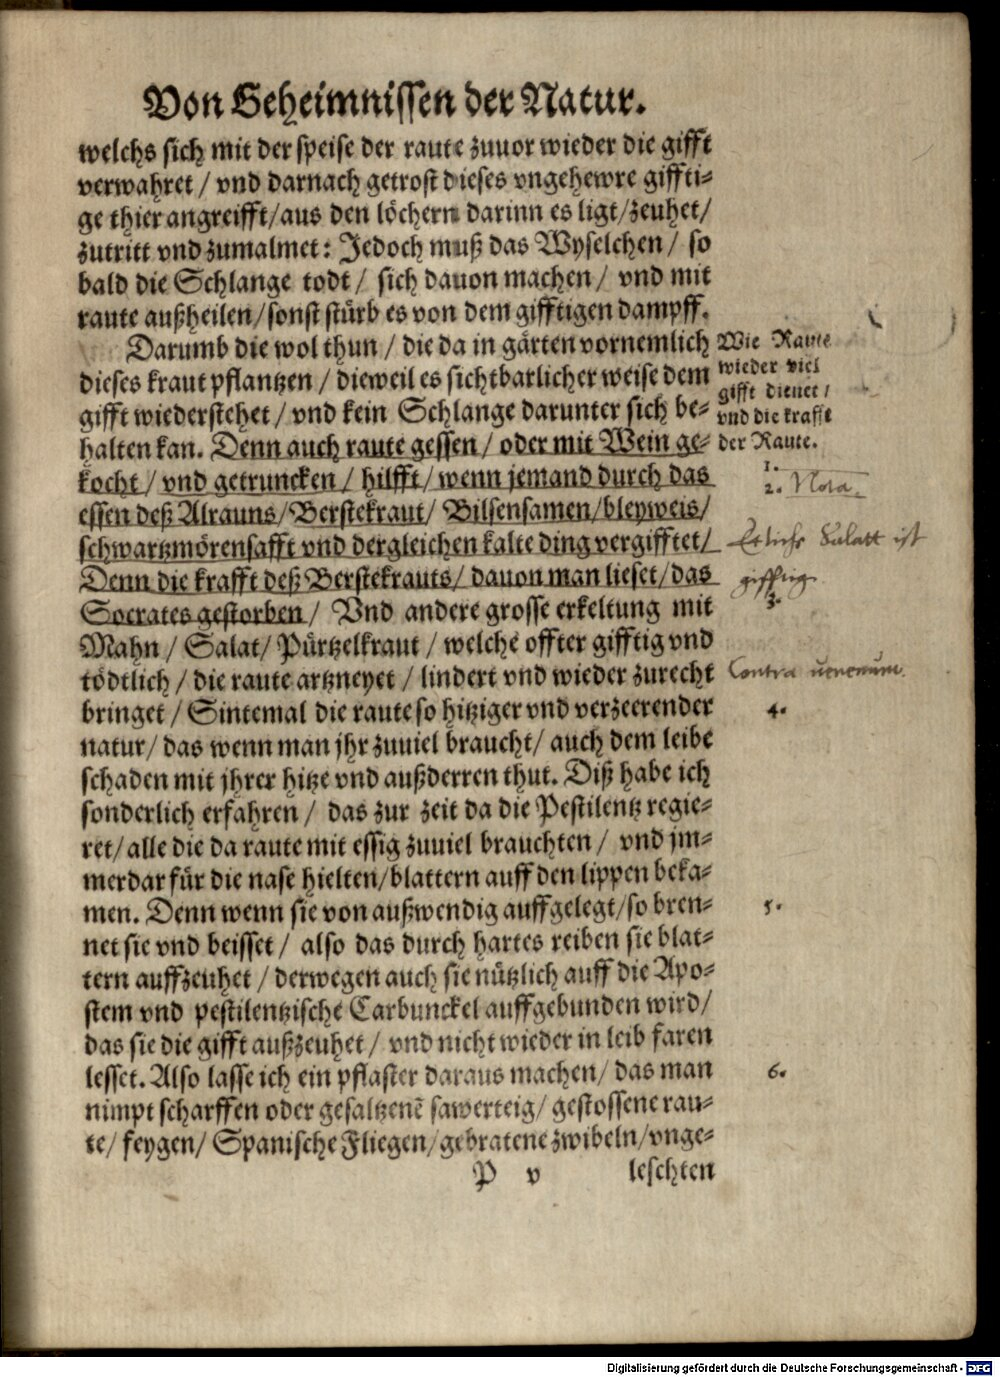 Von Geheimnissen der Natur.
welchs sich mit der speise der raute zuuor wieder die gifft
verwahret / vnd darnach getrost dieses vngehewre giffti-
ge thier angreifft/aus den löchern darinn es ligt/zeuhet/
zutritt vnd zumalmet: Jedoch muß das Wyselchen / so
bald die Schlange todt / sich dauon machen / vnd mit
raute außheilen/sonst stürb es von dem gifftigen dampff.
Darumb die wol thun / die da in gärten vornemlich
dieses kraut pflantzen / dieweil es sichtbarlicher weise dem
gifft wiederstehet / vnd kein Schlange darunter sich be-
halten kan. Denn auch raute gessen / oder mit Wein ge-
kocht / vnd getruncken / hilfft / wenn jemand durch das
essen deß Alrauns/Berstekraut/ Bilsensamen/bleyweis/
schwartzmörensafft vnd dergleichen kalte ding vergifftet/
Denn die krafft deß Berstekrauts/ dauon man lieset/das
Socrates gestorben / Vnd andere grosse erkeltung mit
Mahn / Salat/ Pürtzelkraut / welche offter gifftig vnd
tödtlich / die raute artzneyet / lindert vnd wieder zurecht
bringet / Sintemal die raute so hitziger vnd verzeerender
natur/ das wenn man jhr zuuiel braucht/ auch dem leibe
schaden mit jhrer hitze vnd außderren thut. Diß habe ich
sonderlich erfahren / das zur zeit da die Pestilentz regie-
ret/alle die da raute mit essig zuuiel brauchten / vnd jm-
merdar für die nase hielten/blattern auff den lippen beka-
men. Denn wenn sie von außwendig auffgelegt/so bren-
net sie vnd beisset / also das durch hartes reiben sie blat-
tern auffzeuhet / derwegen auch sie nützlich auff die Apo-
stem vnd pestilentzische Carbunckel auffgebunden wird/
das sie die gifft außzeuhet / vnd nicht wieder in leib faren
lesset. Also lasse ich ein pflaster daraus machen/ das man
nimpt scharffen oder gesaltzenē sawerteig/ gestossene rau-
te/ feygen/ Spanische Fliegen/gebratene zwibeln/vnge-
P v leschten
Wie Raute
wieder viel
gifft dienet /
vnd die krafft
der Raute.
1.
2. Nota.
Etliche Salatt ist
gifftig.
3.
Contra uenenum.
4.
5.
6.
Digitalisierung gefördert durch die Deutsche Forschungsgemeinschaft - DFG